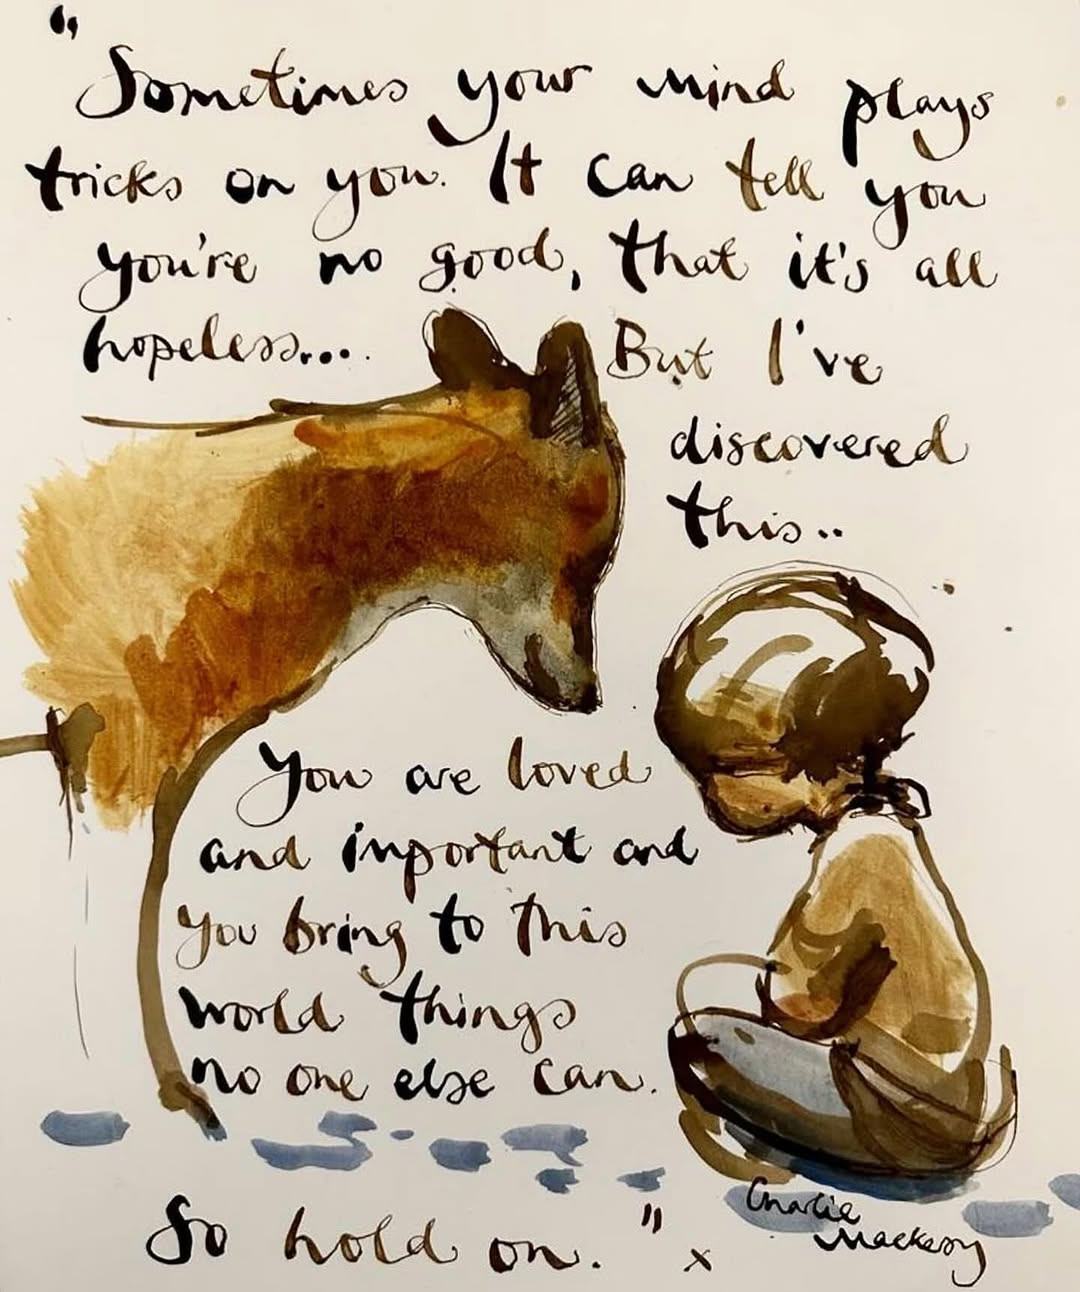 "Sometimes your mind plays
tricks on you. It can tell you
you're no good, that it's all
hopeless.... But I've
discovered
this..
You are loved
and important and
you bring to this
world things
no one else can.
So hold on." x
Charlie
Mackesy